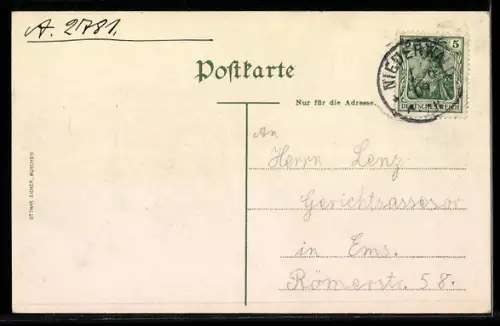 A. 2781.
Postkarte
Nur für die Adresse.
5
DEUTSCHES REICH
An
Herrn Lenz
Gerichtsassesor
in Ems.
Römerstr. 58.
OTTMAR ZIEHER, MÜNCHEN